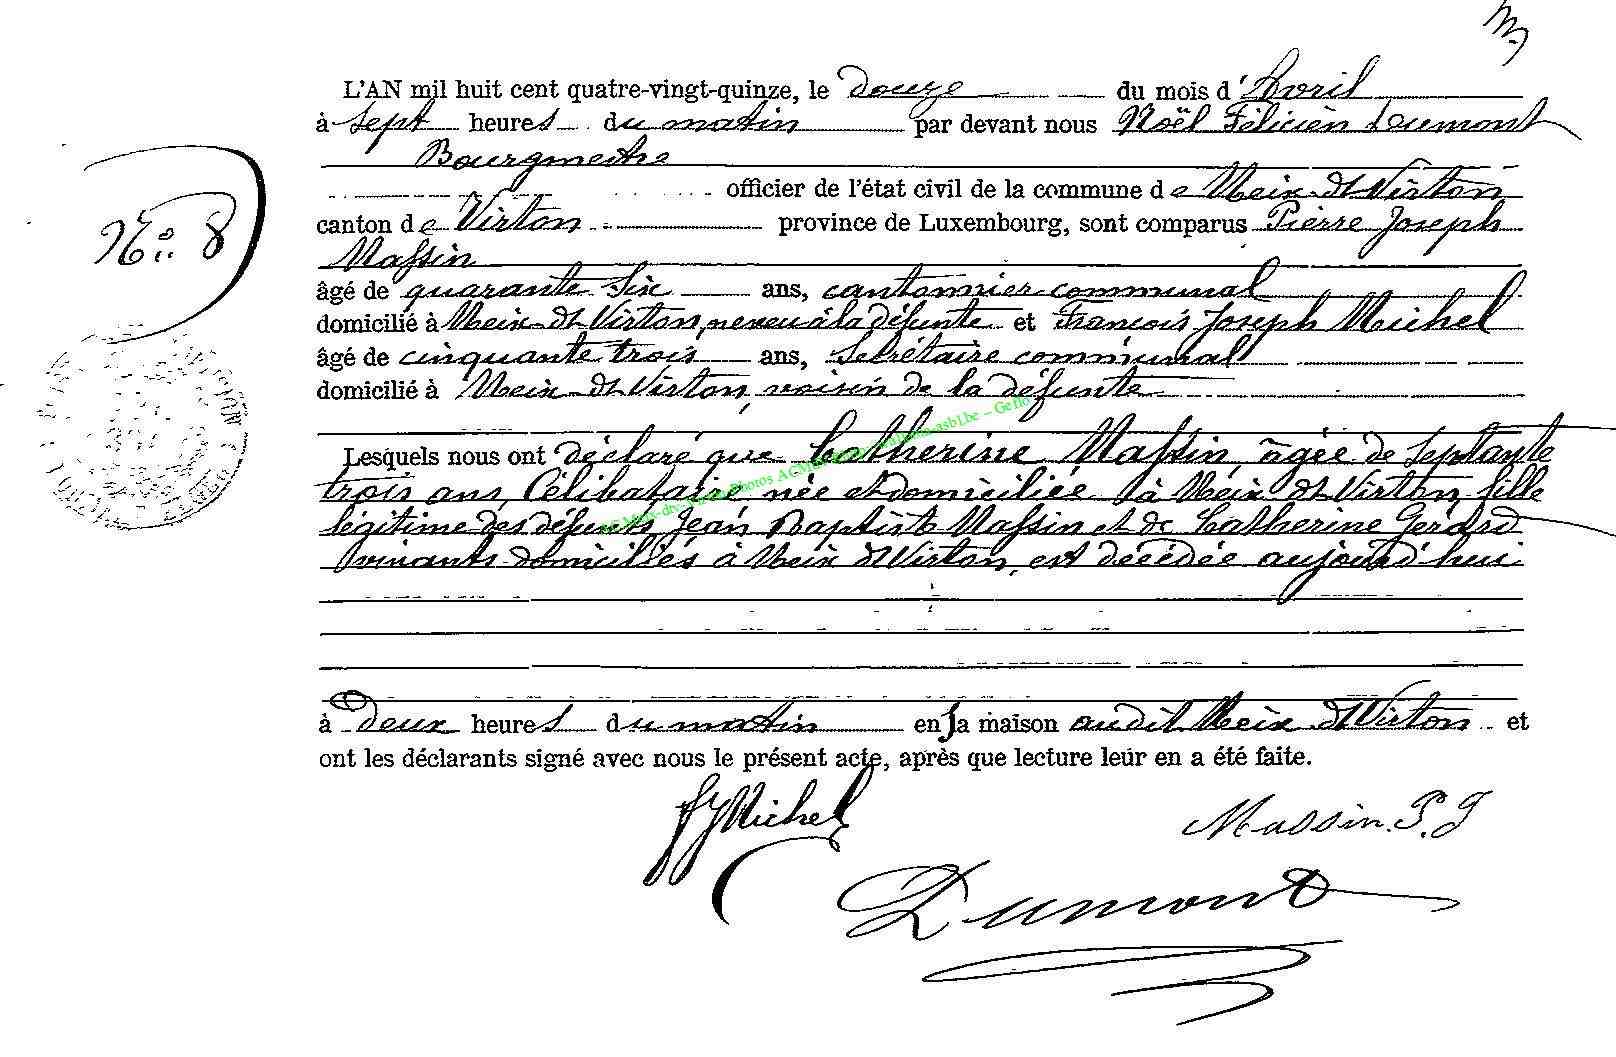 L'AN mil huit cent quatre-vingt-quinze, le douze du mois d'Avril
à sept heures du matin par devant nous Noël Félicien Dumont
Bourgmestre
officier de l'état civil de la commune de Meix-dt-Virton
canton de Virton province de Luxembourg, sont comparus Pierre Joseph
Massin
No: 8
âgé de quarante six ans, cantonnier communal
domicilié à Meix-dt-Virton, neveu à la défunte et François Joseph Michel
âgé de cinquante trois ans, Secrétaire communal
domicilié à Meix-dt-Virton, voisin de la défunte
Lesquels nous ont déclaré que Catherine Massin, âgée de septante
trois ans, Célibataire née et domiciliée à Meix dt Virton, fille
légitime des défunts Jean Baptiste Massin et de Catherine Gérard
vivants domiciliés à Meix dt Virton, est décédée aujourd'hui
à deux heures du matin en sa maison audit Meix dt Virton et
ont les déclarants signé avec nous le présent acte, après que lecture leur en a été faite.
FJMichel
Massin. P. J
Dumont